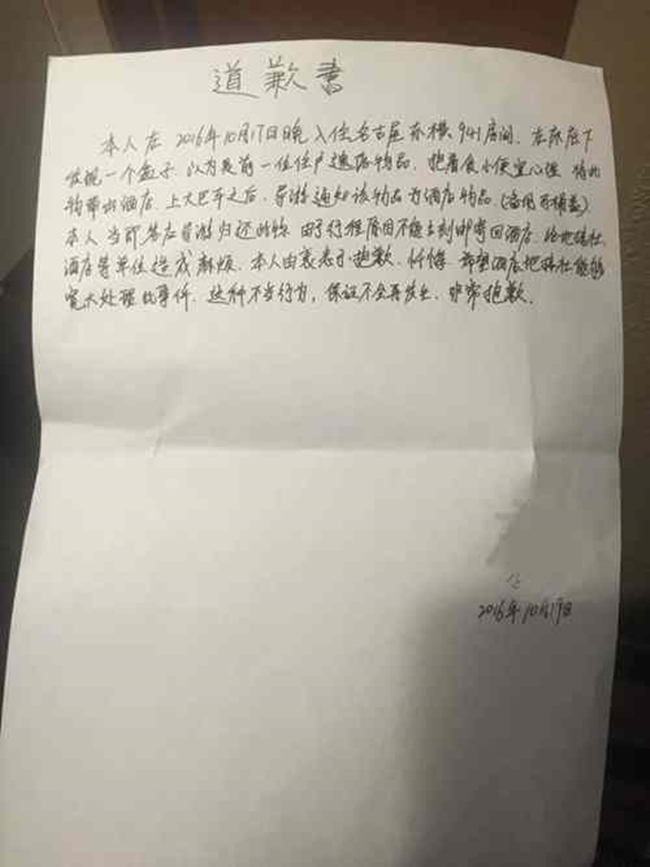 道歉書
本人在2016年10月17日晚入住名古屋东横941房间，在床底下
发现一个盒子，以为是前一位住户遗落物品，抱着贪小便宜心理，将此
物带出酒店，上大巴车之后，导游通知该物品为酒店物品（备用马桶盖）
本人当即答应导游归还此物，由于行程原因不能立刻邮寄回酒店，给地接社
酒店等单位造成麻烦，本人由衷表示抱歉，忏悔，希望酒店地接社能够
宽大处理此事件，这种不当行为，保证不会再发生，非常抱歉。
2016年10月19日